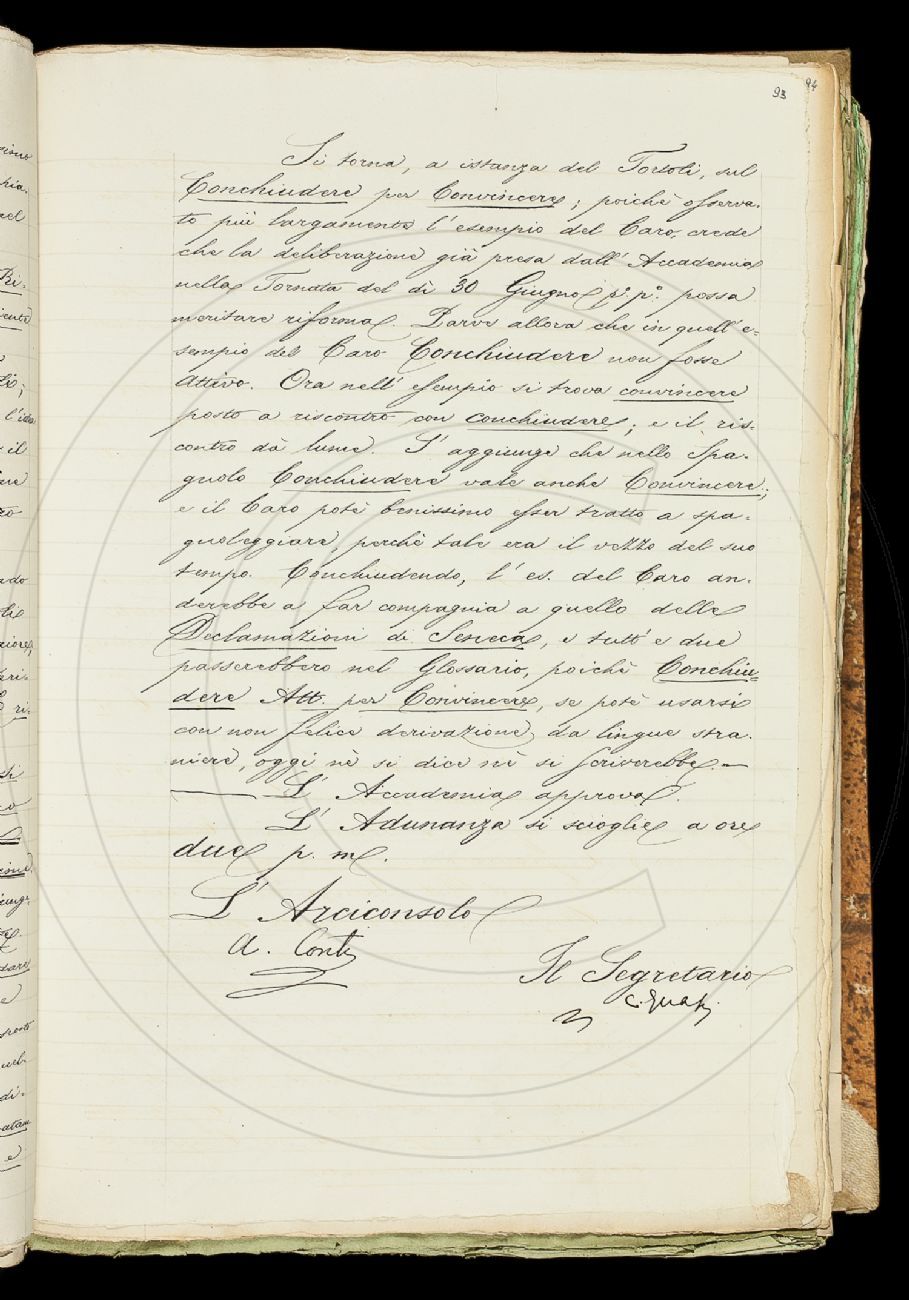 93
94
Si torna, a istanza del Tortoli, sul
Conchiudere per Convincere; poichè osserva-
to più largamente l'esempio del Caro, crede
che la deliberazione già presa dall'Accademia
nella Tornata del dì 30 Giugno p.º p.º possa
meritare riforma. Parve allora che in quell'e-
sempio del Caro Conchiudere non fosse
Attivo. Ora nell'esempio si trova convincere
posto a riscontro con conchiudere; e il ris-
contro dà lume. S'aggiunge che nello Spa-
gnolo Conchiudere vale anche Convincere;
e il Caro potè benissimo esser tratto a spa-
gnoleggiare, perchè tale era il vezzo del suo
tempo. Conchiudendo, l'es. del Caro an-
derebbe a far compagnia a quello delle
Declamazioni di Seneca, e tutt'e due
passerebbero nel Glossario, poichè Conchiu-
dere Att. per Convincere, se potè usarsi
con non felice derivazione da lingue stra-
niere, oggi nè si dice nè si scriverebbe.—
— L'Accademia approva.
L'Adunanza si scioglie a ore
due p. m.
L'Arciconsolo
A. Conti
Il Segretario
C. Guasti